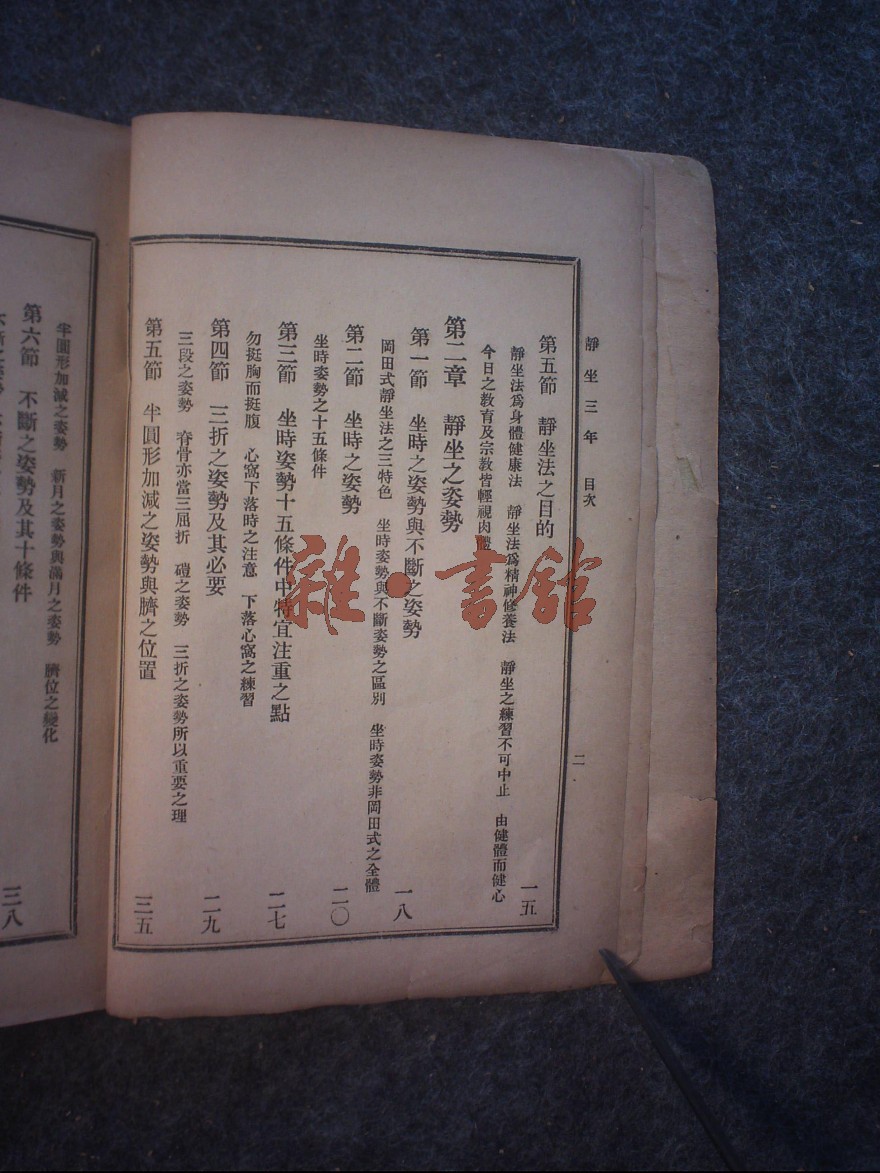 靜坐三年　目次
二
第五節　靜坐法之目的　一五
靜坐法爲身體健康法　靜坐法爲精神修養法　靜坐之練習不可中止　由健體而健心
今日之教育及宗教皆輕視肉體
第二章　靜坐之姿勢
第一節　坐時之姿勢與不斷之姿勢　一八
岡田式靜坐法之三特色　坐時姿勢與不斷姿勢之區別　坐時姿勢非岡田式之全體
第二節　坐時之姿勢　二〇
坐時姿勢之十五條件
第三節　坐時姿勢十五條件中特宜注重之點　二七
勿挺胸而挺腹　心窩下落時之注意　下落心窩之練習
第四節　三折之姿勢及其必要　二九
三段之姿勢　脊骨亦當三屈折　磴之姿勢　三折之姿勢所以重要之理
第五節　半圓形加減之姿勢與臍之位置　三五
半圓形加減之姿勢　新月之姿勢與滿月之姿勢　臍位之變化
第六節　不斷之姿勢及其十條件　三八
雜·書館